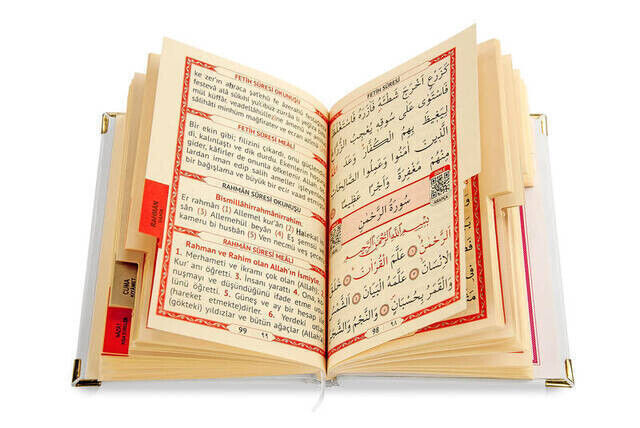 FETİH SÛRESİ OKUNUŞU
ke zer'ın ahrace şat'ehû fe âzerahû
festevâ alâ sûkıhî yu'cibuz zurrâa li yeğîza
mül küffâr, veadellâhüllezîne âmenû ve amilus
sâlihâti minhüm mağfiratev ve ecran azîmâ
FETİH SÛRESİ MEÂLİ
Bir ekin gibi; filizini çıkardı, onu güçlen
di, kalınlaştı ve dik durdu. Ekenlerin hoşuna
gider, kâfirler de onunla öfkelenir. Allah
lardan iman edip salih ameller işleyenlere
bir bağışlama ve büyük bir ecir vaad etmiştir
RAHMÂN SÛRESİ OKUNUŞU
Bismillâhirrahmânirrahîm.
Er rahmân (1) Allemel kur'ân (2) Halekal
sân (3) Allemehül beyân (4) Eş şemsü
kameru bi husbân (5) Ven necmü veş şeceru
RAHMÂN SÛRESİ MEÂLİ
Rahman ve Rahim olan Allah'ın İsmiyle.
1. Merhameti ve ikramı çok olan (Allah) 2.
Kur'anı öğretti. 3. İnsanı yarattı 4. Ona, ko
nuşmayı ve düşündüğünü ifade etme
lünü öğretti. 5. Güneş ve ay bir hesap ile
(hareket etmekte)dirler. 6. Yerdeki otlar
(gökteki) yıldızlar ve bütün ağaçlar (Allah'
99 ٩٩
RAHMÂN
CUMA
FETİH SÛRESİ
كَزَرْعٍ اَخْرَجَ شَطْـَٔهُ فَاٰزَرَهُ فَاسْتَغْلَظَ
فَاسْتَوٰى عَلٰى سُوقِهِ يُعْجِبُ الزُّرَّاعَ
لِيَغِيظَ بِهِمُ الْكُفَّارَ وَعَدَ اللّٰهُ
الَّذِينَ اٰمَنُوا وَعَمِلُوا الصَّالِحَاتِ
مِنْهُمْ مَغْفِرَةً وَاَجْرًا عَظِيمًا
سُورَةُ الرَّحْمٰنِ
بِسْمِ اللّٰهِ الرَّحْمٰنِ الرَّحِيمِ
اَلرَّحْمٰنُ عَلَّمَ الْقُرْاٰنَ خَلَقَ
الْاِنْسَانَ عَلَّمَهُ الْبَيَانَ اَلشَّمْسُ
وَالْقَمَرُ بِحُسْبَانٍ وَالنَّجْمُ وَالشَّجَرُ
98 ٩٨